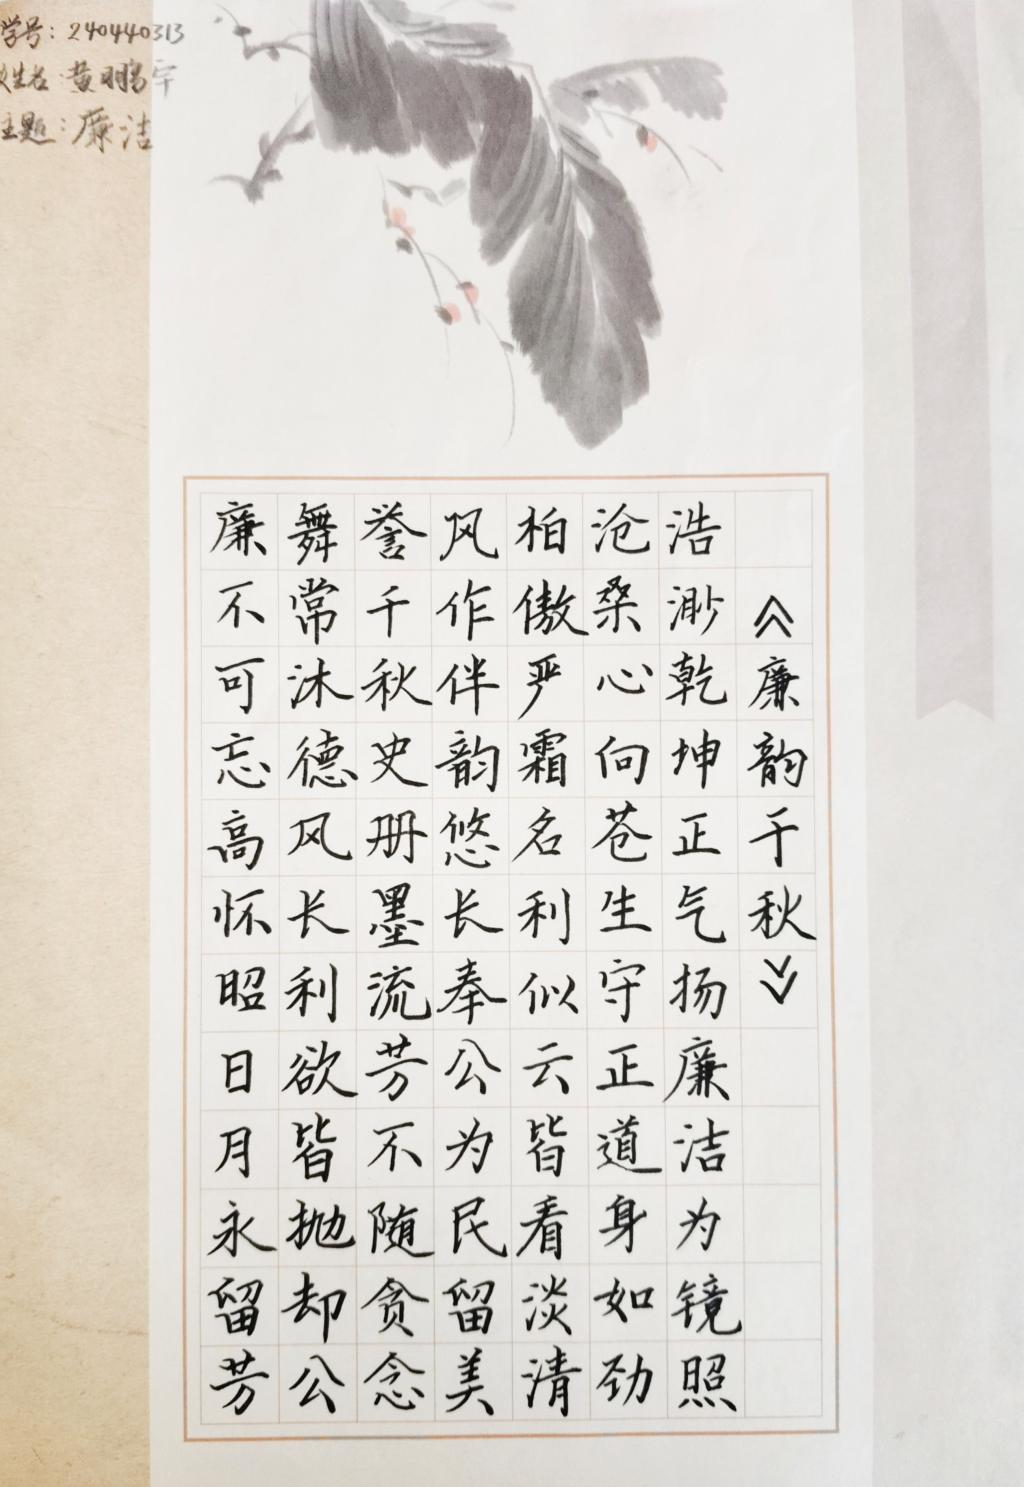 学号：240440313
姓名：黄鹏宇
主题：廉洁
《廉韵千秋》
浩渺乾坤正气扬廉洁为镜照
沧桑心向苍生守正道身如劲
柏傲严霜名利似云皆看淡清
风作伴韵悠长奉公为民留美
誉千秋史册墨流芳不随贪念
舞常沐德风长利欲皆抛却公
廉不可忘高怀昭日月永留芳